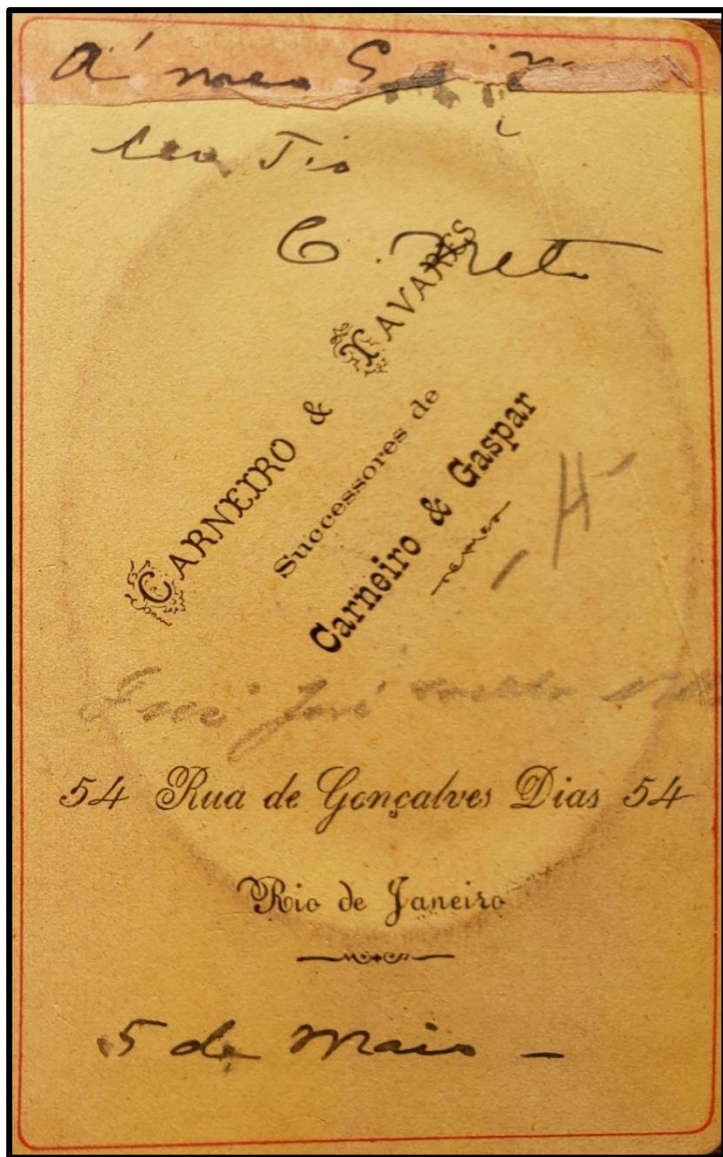 A' meo
seu Tio
C. Netto
CARNEIRO & TAVARES
Successores de
Carneiro & Gaspar
H
José
54 Rua de Gonçalves Dias 54
Rio de Janeiro
5 de Maio –